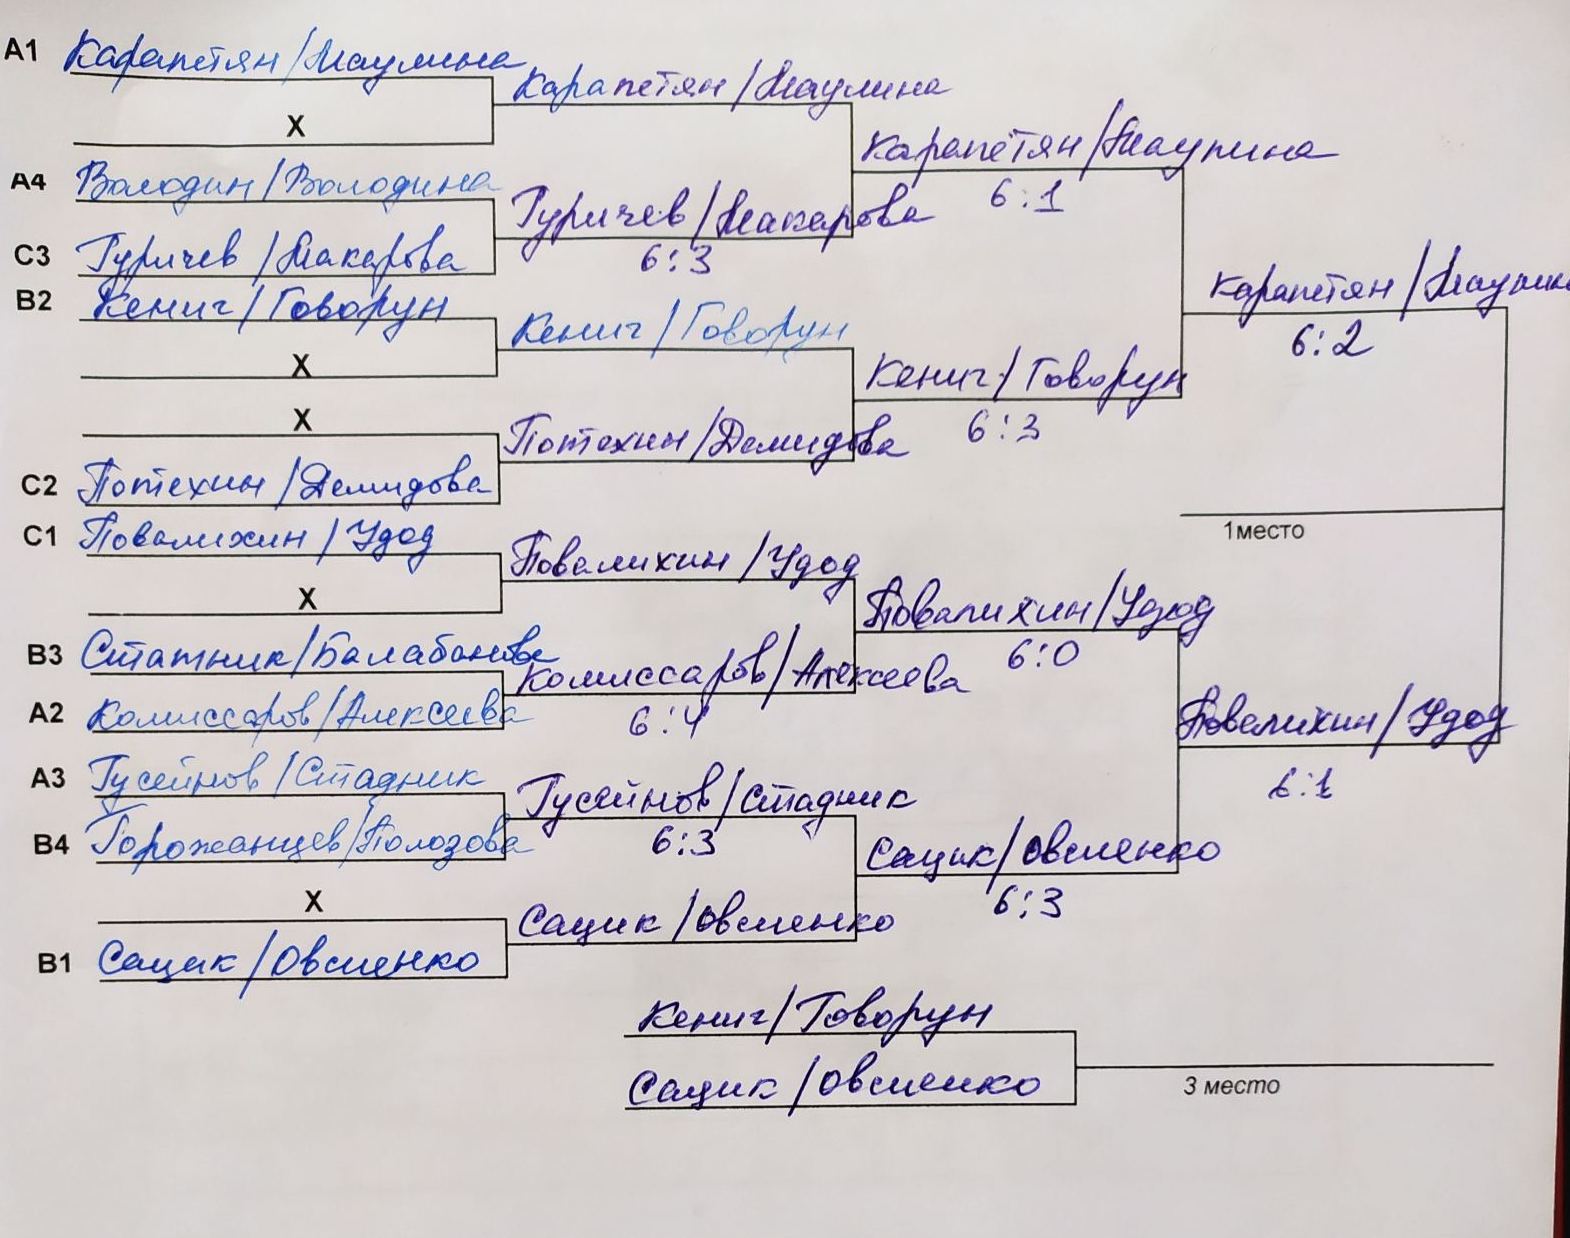 A1 Карапетян/Маулина
Карапетян/Маулина
X
Карапетян/Маулина
6:1
A4 Володин/Володина
Гуричев/Макарова
6:3
C3 Гуричев/Макарова
Карапетян/Маулина
6:2
B2 Кениг/Говорун
Кениг/Говорун
X
Кениг/Говорун
6:3
X
Потехин/Демидова
C2 Потехин/Демидова
1место
C1 Повалихин/Удод
Повалихин/Удод
X
Повалихин/Удод
6:0
B3 Статник/Балабанова
Комиссаров/Алексеева
6:4
A2 Комиссаров/Алексеева
Повалихин/Удод
6:1
A3 Гусейнов/Стадник
Гусейнов/Стадник
6:3
B4 Горожанцев/Полозова
Сацик/Овсиенко
6:3
X
Сацик/Овсиенко
B1 Сацик/Овсиенко
Кениг/Говорун
Сацик/Овсиенко
3 место